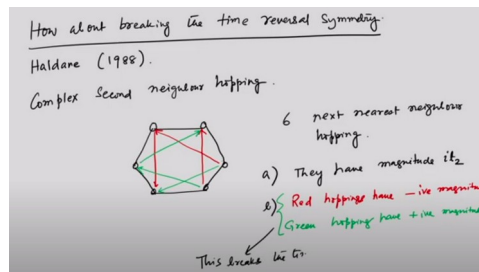 How about breaking the time reversal symmetry.
Haldane (1988).
Complex second neighbour hopping.
6 next nearest neighbour
hopping.
a) They have magnitude it2
b) Red hoppings have -ive magnitu
Green hopping have +ive magnitu
This breaks the